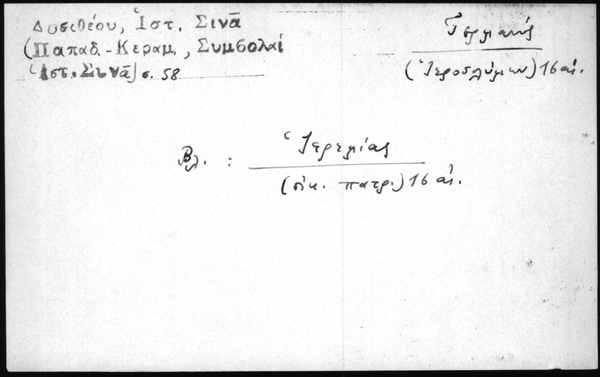 Δοσιθέου, Ἱστ. Σινᾶ
(Παπαδ.-Κεραμ., Συμβολαί
Ἱστ. Σινᾶ) σ. 58
Γερμανός
(Ἱεροσολύμων) 16 αἰ.
Βλ. : Ἱερεμίας
(οἰκ. πατρ.) 16 αἰ.